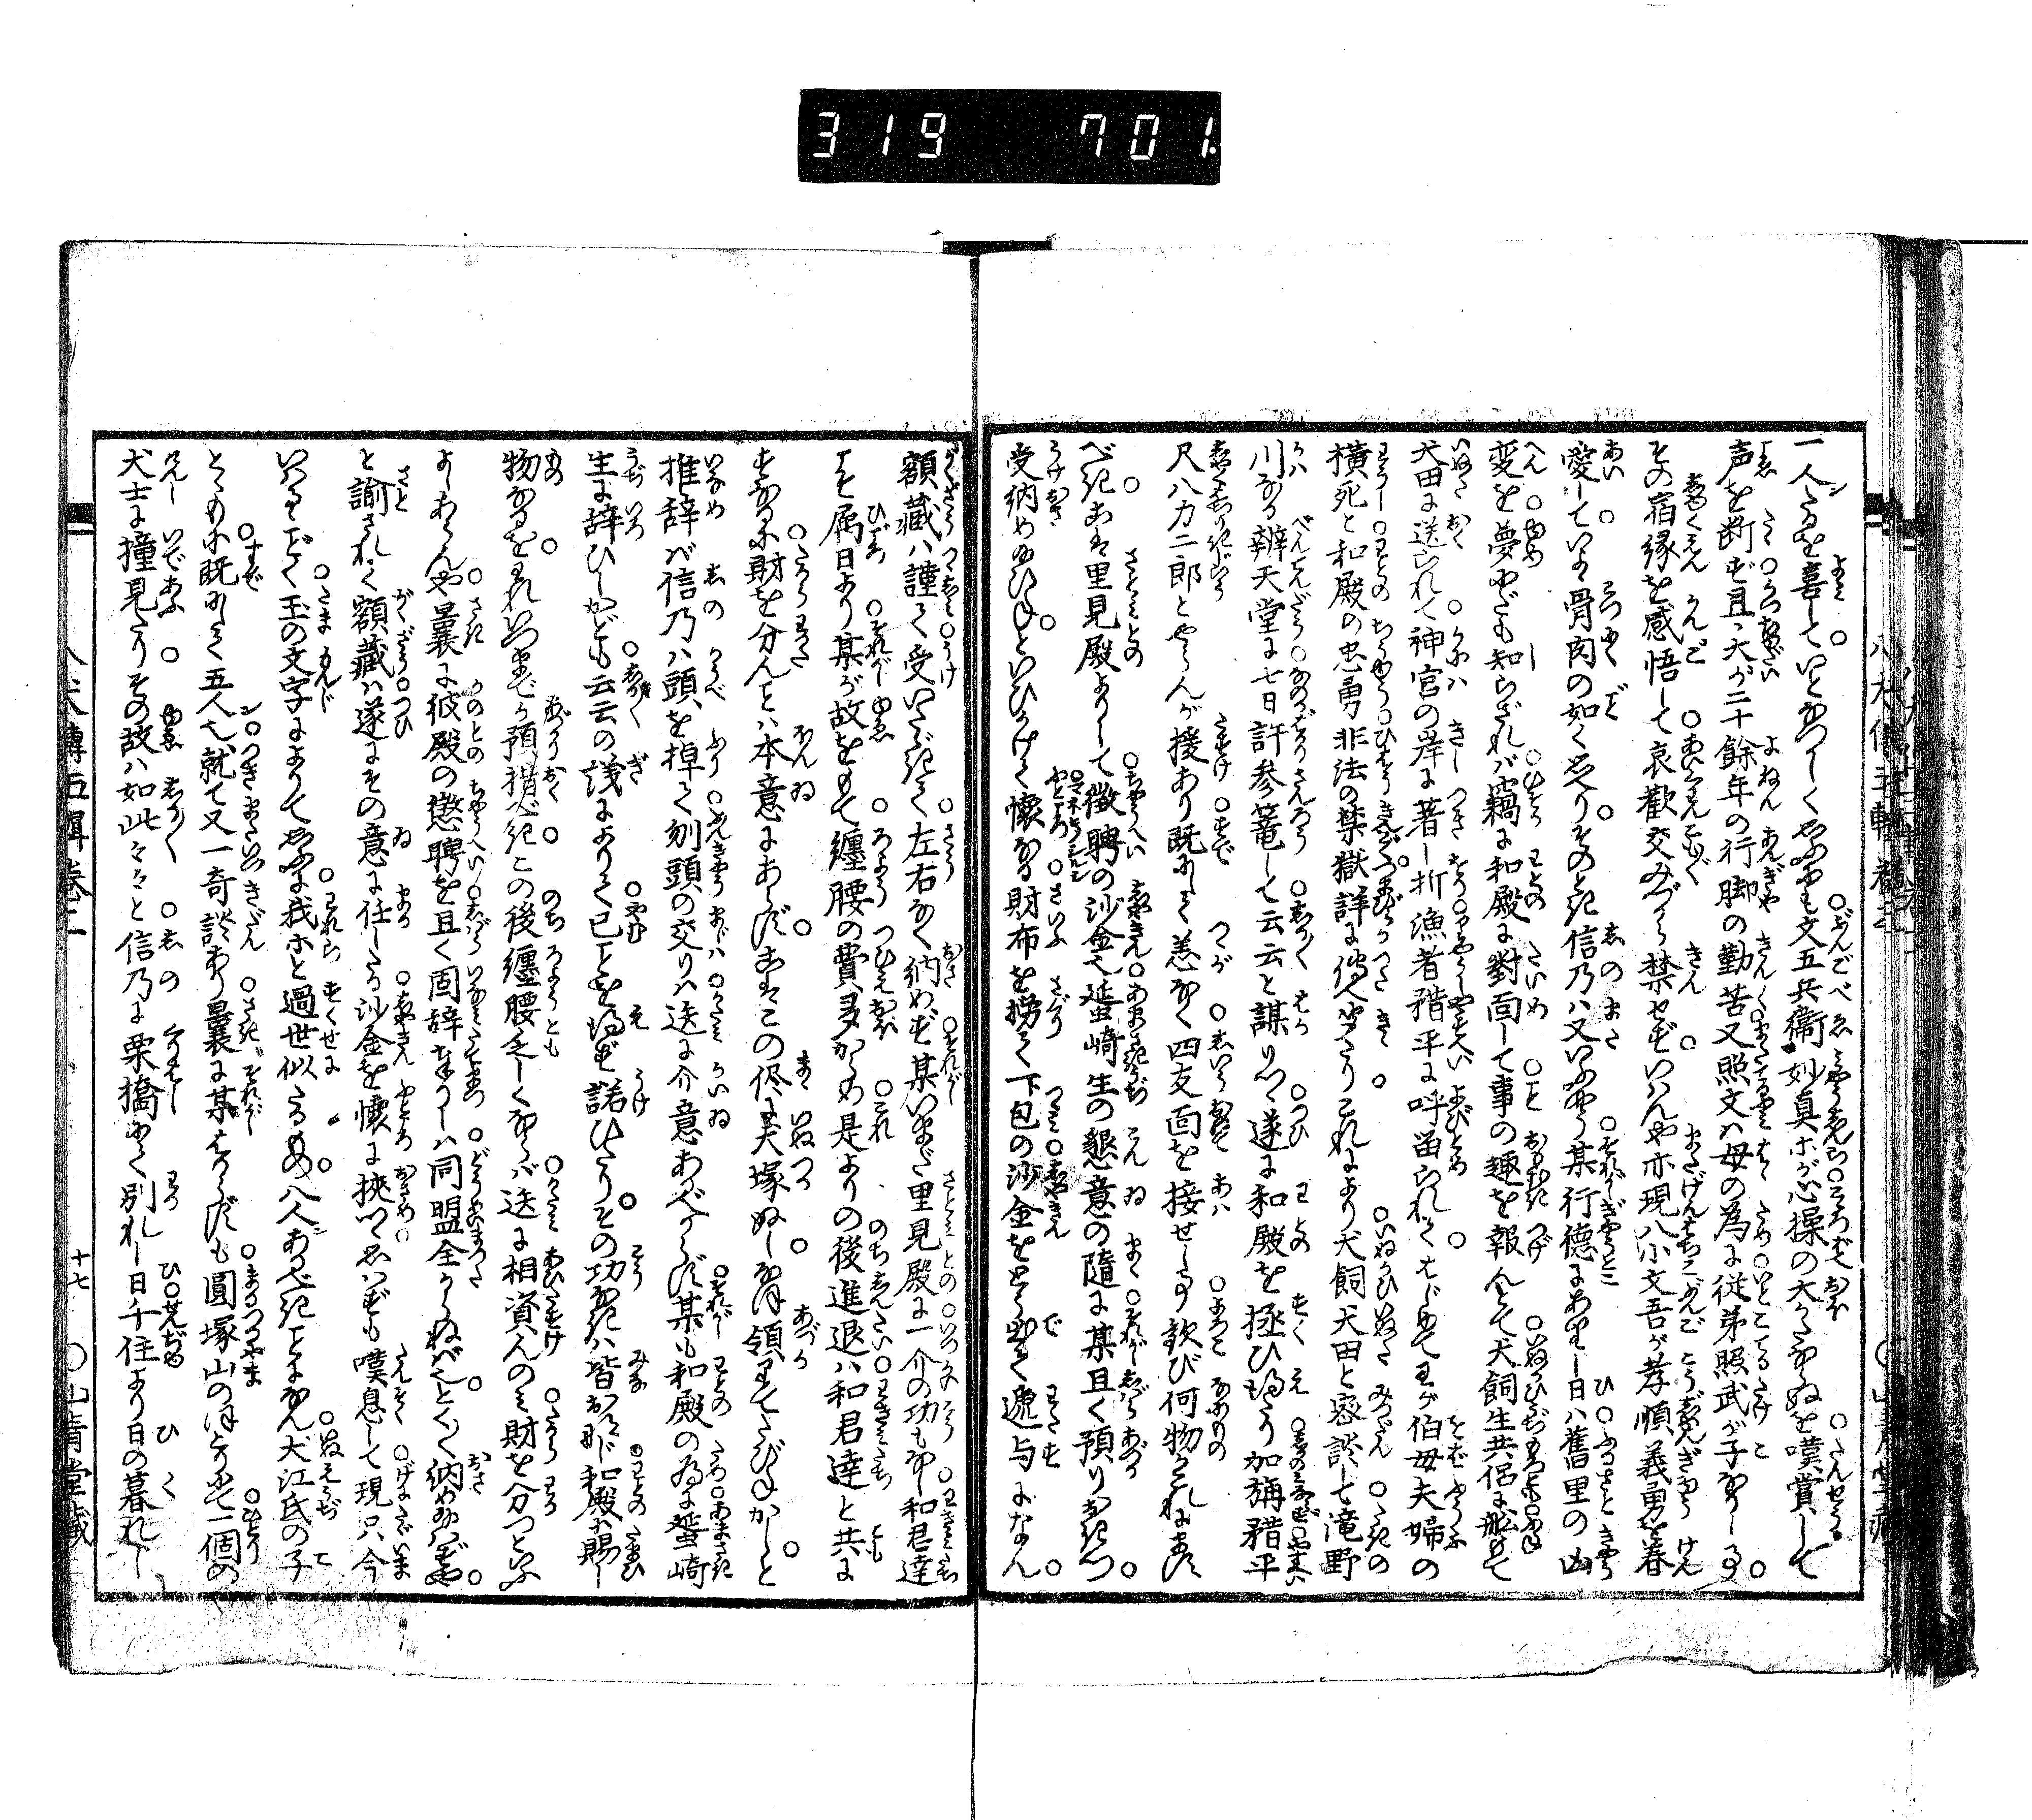 319 701
一人たるを喜していへばつしくやがても文五兵衛妙真等が心操の大かたならぬを嘆賞して
声を断ず且、大が二十餘年の行脚の勤苦又照文は母の為に従弟照武が子なりし事
その宿縁を感悟して哀歓交みづから禁せずいはんや亦現八小文吾が孝順義勇を眷
愛していよ骨肉の如く思へりそのとき信乃は又いふやう某行徳にありし日は舊里の凶
変を夢にだも知らざれば竊に和殿に對面して事の趣を報んとて犬飼生共侶に船もて
犬田に送られて神宮の岸に著し折漁者䅣平に呼留られてはじめてわが伯母夫婦の
横死と和殿の忠勇非法の禁獄詳に傳へ聞たりこれにより犬飼犬田と密談して滝野
川なる辨天堂に七日許参篭して云云と謀りつ遂に和殿を拯ひ得たり加旃䅣平
尺八力二郎とやらんが援あり既にして恙なく四友面を接せし事歓び何物かこれにます
べきこは里見殿よりして徴聘の沙金也蜑崎生の懇意の随に某且く預りおきつ
受納め給ひねといひかけて懐なる財布を撈りて下包の沙金をとり出て遞与になん
額藏は謹て受いたゞきて左右なく納めず某いまだ里見殿に一介の功もなし和君達
こそ属日より某が故をもて纏腰の費多からめ是よりの後進退は和君達と共に
すなるに財を分んとは本意にあらずこはこの侭に犬塚ぬし領してたびねかしと
推辞ば信乃は頭を掉て刎頭の交りは迭に介意あべからず某も和殿の為に蜑崎
生に辞ひしかども云云の議によりて已ことを得ず諾ひたりその功なきは皆おなじ和殿に賜し
物なるをわれいつまでか預措べきこの後纏腰乏しくならば迭に相資んのみ財を分つといふ
よしあらんや曩に彼殿の徴聘を且く固辞まうししは同盟全からねばなりとく〳〵納め給はずや
と諭されて額藏は遂にその意に任しつゝ沙金を懐に挾つゝ思はずも嘆息して現只今
いはるゝごとく玉の文字によりて思ふに我等と過世似たるもの八人あるべきことになん犬江氏の子
とゝもに既にして五人也就て又一奇談あり曩に某はからずも圓塚山のほとりにて一個の
犬士に撞見たりその故は如此々々と信乃に栗橋にて別れし日千住より日の暮れし
八犬傳五輯巻二
十七
〇山青堂藏